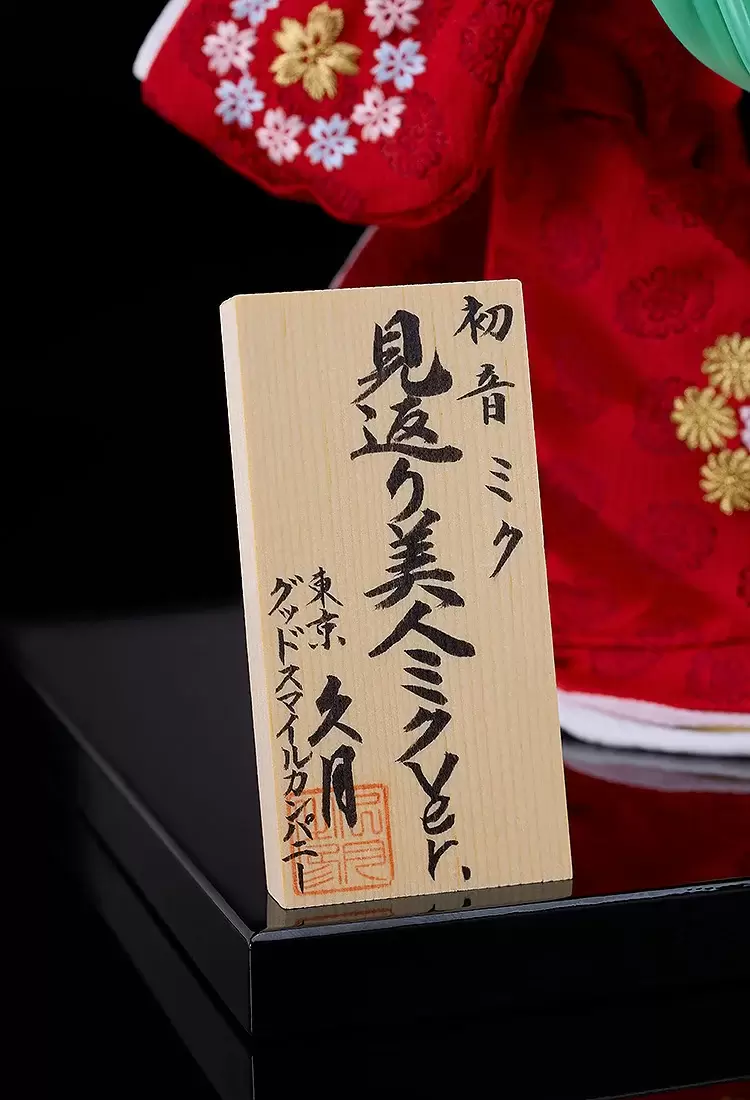 初音ミク
見返り美人ミクVer.
東京 久月
グッドスマイルカンパニー